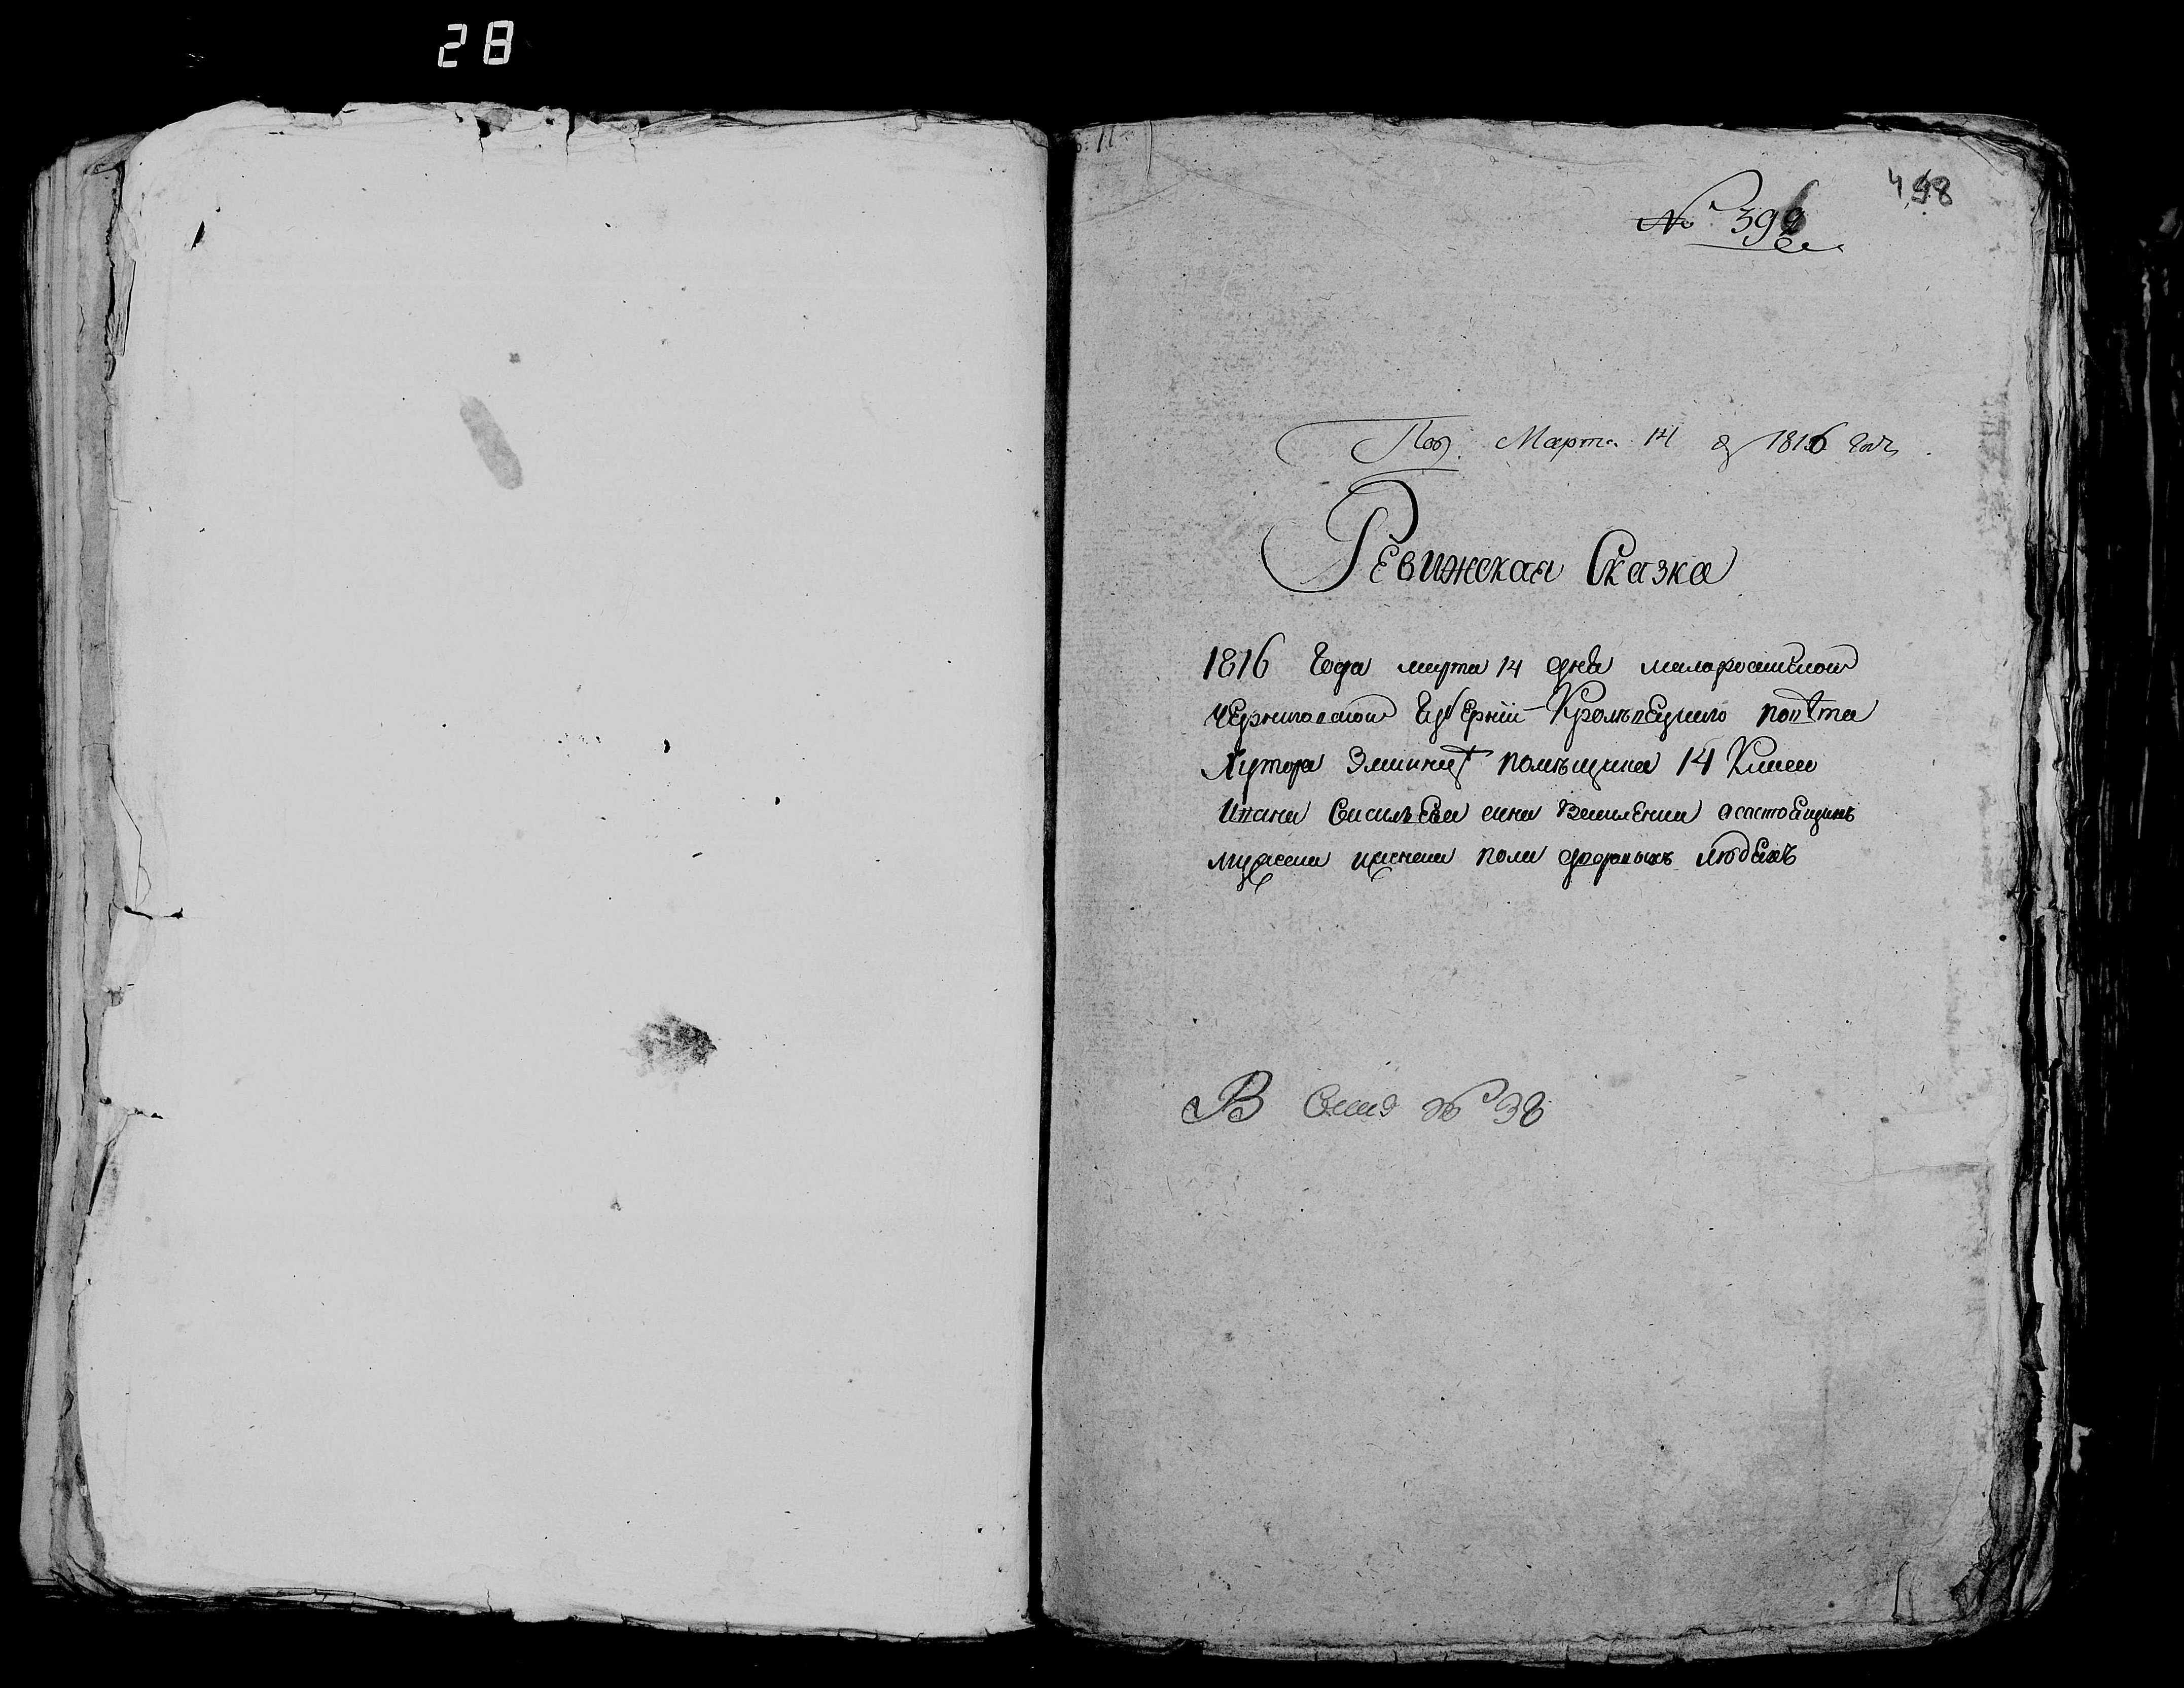 28
498
№ 396
Под. Марта 14 д 1816 года
Ревижская Сказка
1816 года марта 14 дня малоросийской
Черниговской губернии Кролевецкого повѣта
Хутора помѣщика 14 Класа
Ивана Василѣева сина осостоящихъ
мужеска иженска пола дворовихъ людехъ
В № 38